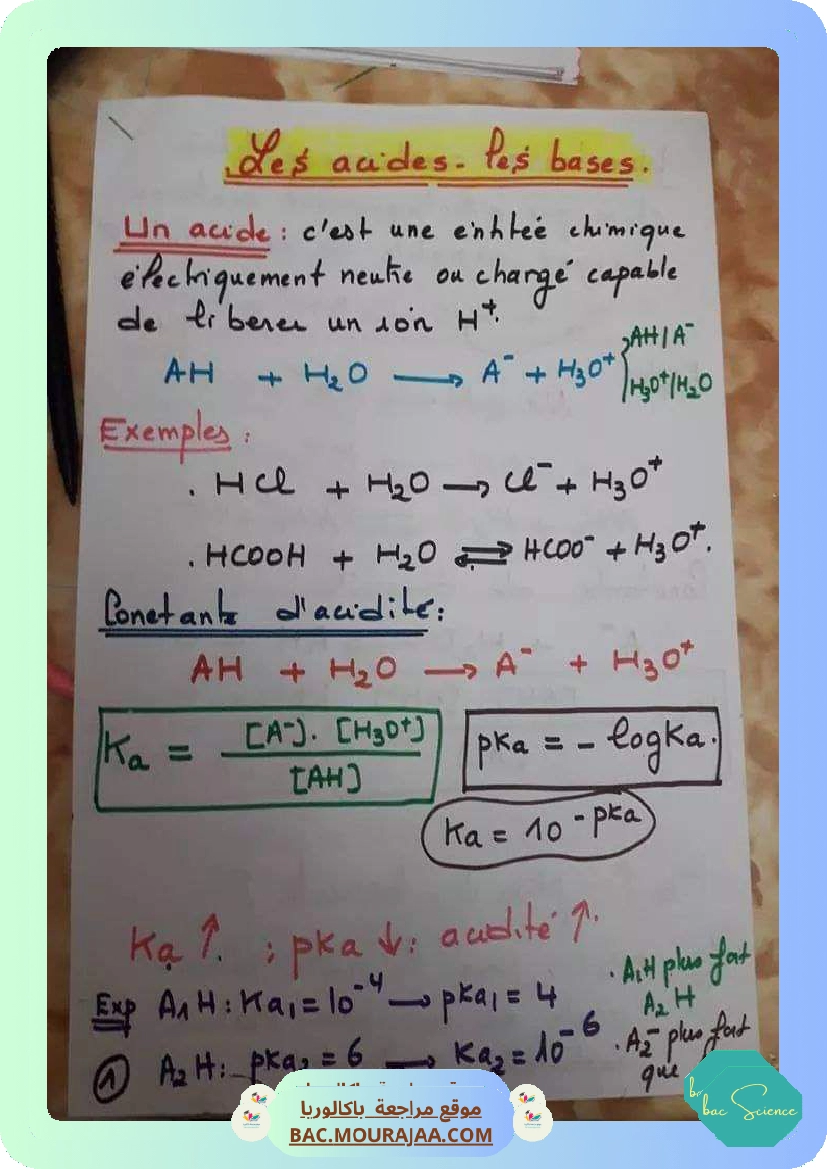 Les acides - les bases.
Un acide : c'est une entitée chimique
électriquement neutre ou chargé capable
de liberer un ion H⁺.
AH + H₂O → A⁻ + H₃O⁺ { AH / A⁻
H₃O⁺/H₂O
Exemples :
. HCl + H₂O → Cl⁻ + H₃O⁺
. HCOOH + H₂O ⇌ HCOO⁻ + H₃O⁺.
Constante d'acidité :
AH + H₂O → A⁻ + H₃O⁺
Ka = [A⁻]. [H₃O⁺] / [AH]
pKa = - logKa.
Ka = 10⁻ᵖᴷᵃ
Ka ↑. ; pKa ↓ : acidité ↑.
Exp A₁H : Ka₁ = 10⁻⁴ → pKa₁ = 4
. A₁H plus fort
A₂H
① A₂H : pKa₂ = 6 → Ka₂ = 10⁻⁶
. A₂⁻ plus fort
que
موقع مراجعة باكالوريا
BAC.MOURAJAA.COM
bac Science